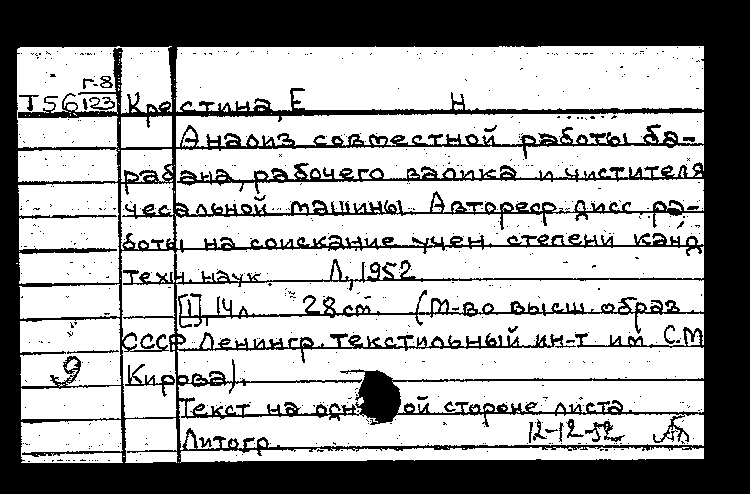 Г-8
Т56 123 Крестина, Е Н.
Анализ совместной работы ба-
рабана, рабочего валика и чистителя
чесальной машины. Автореф. дисс. ра-
боты на соискание учен. степени канд
техн. наук. Л., 1952.
[1], 14 л. 28 см. (М-во высш. образ.
СССР Ленингр. текстильный ин-т им. С.М
Кирова).
9
Текст на одн ой стороне листа.
Литогр. 12-12-52